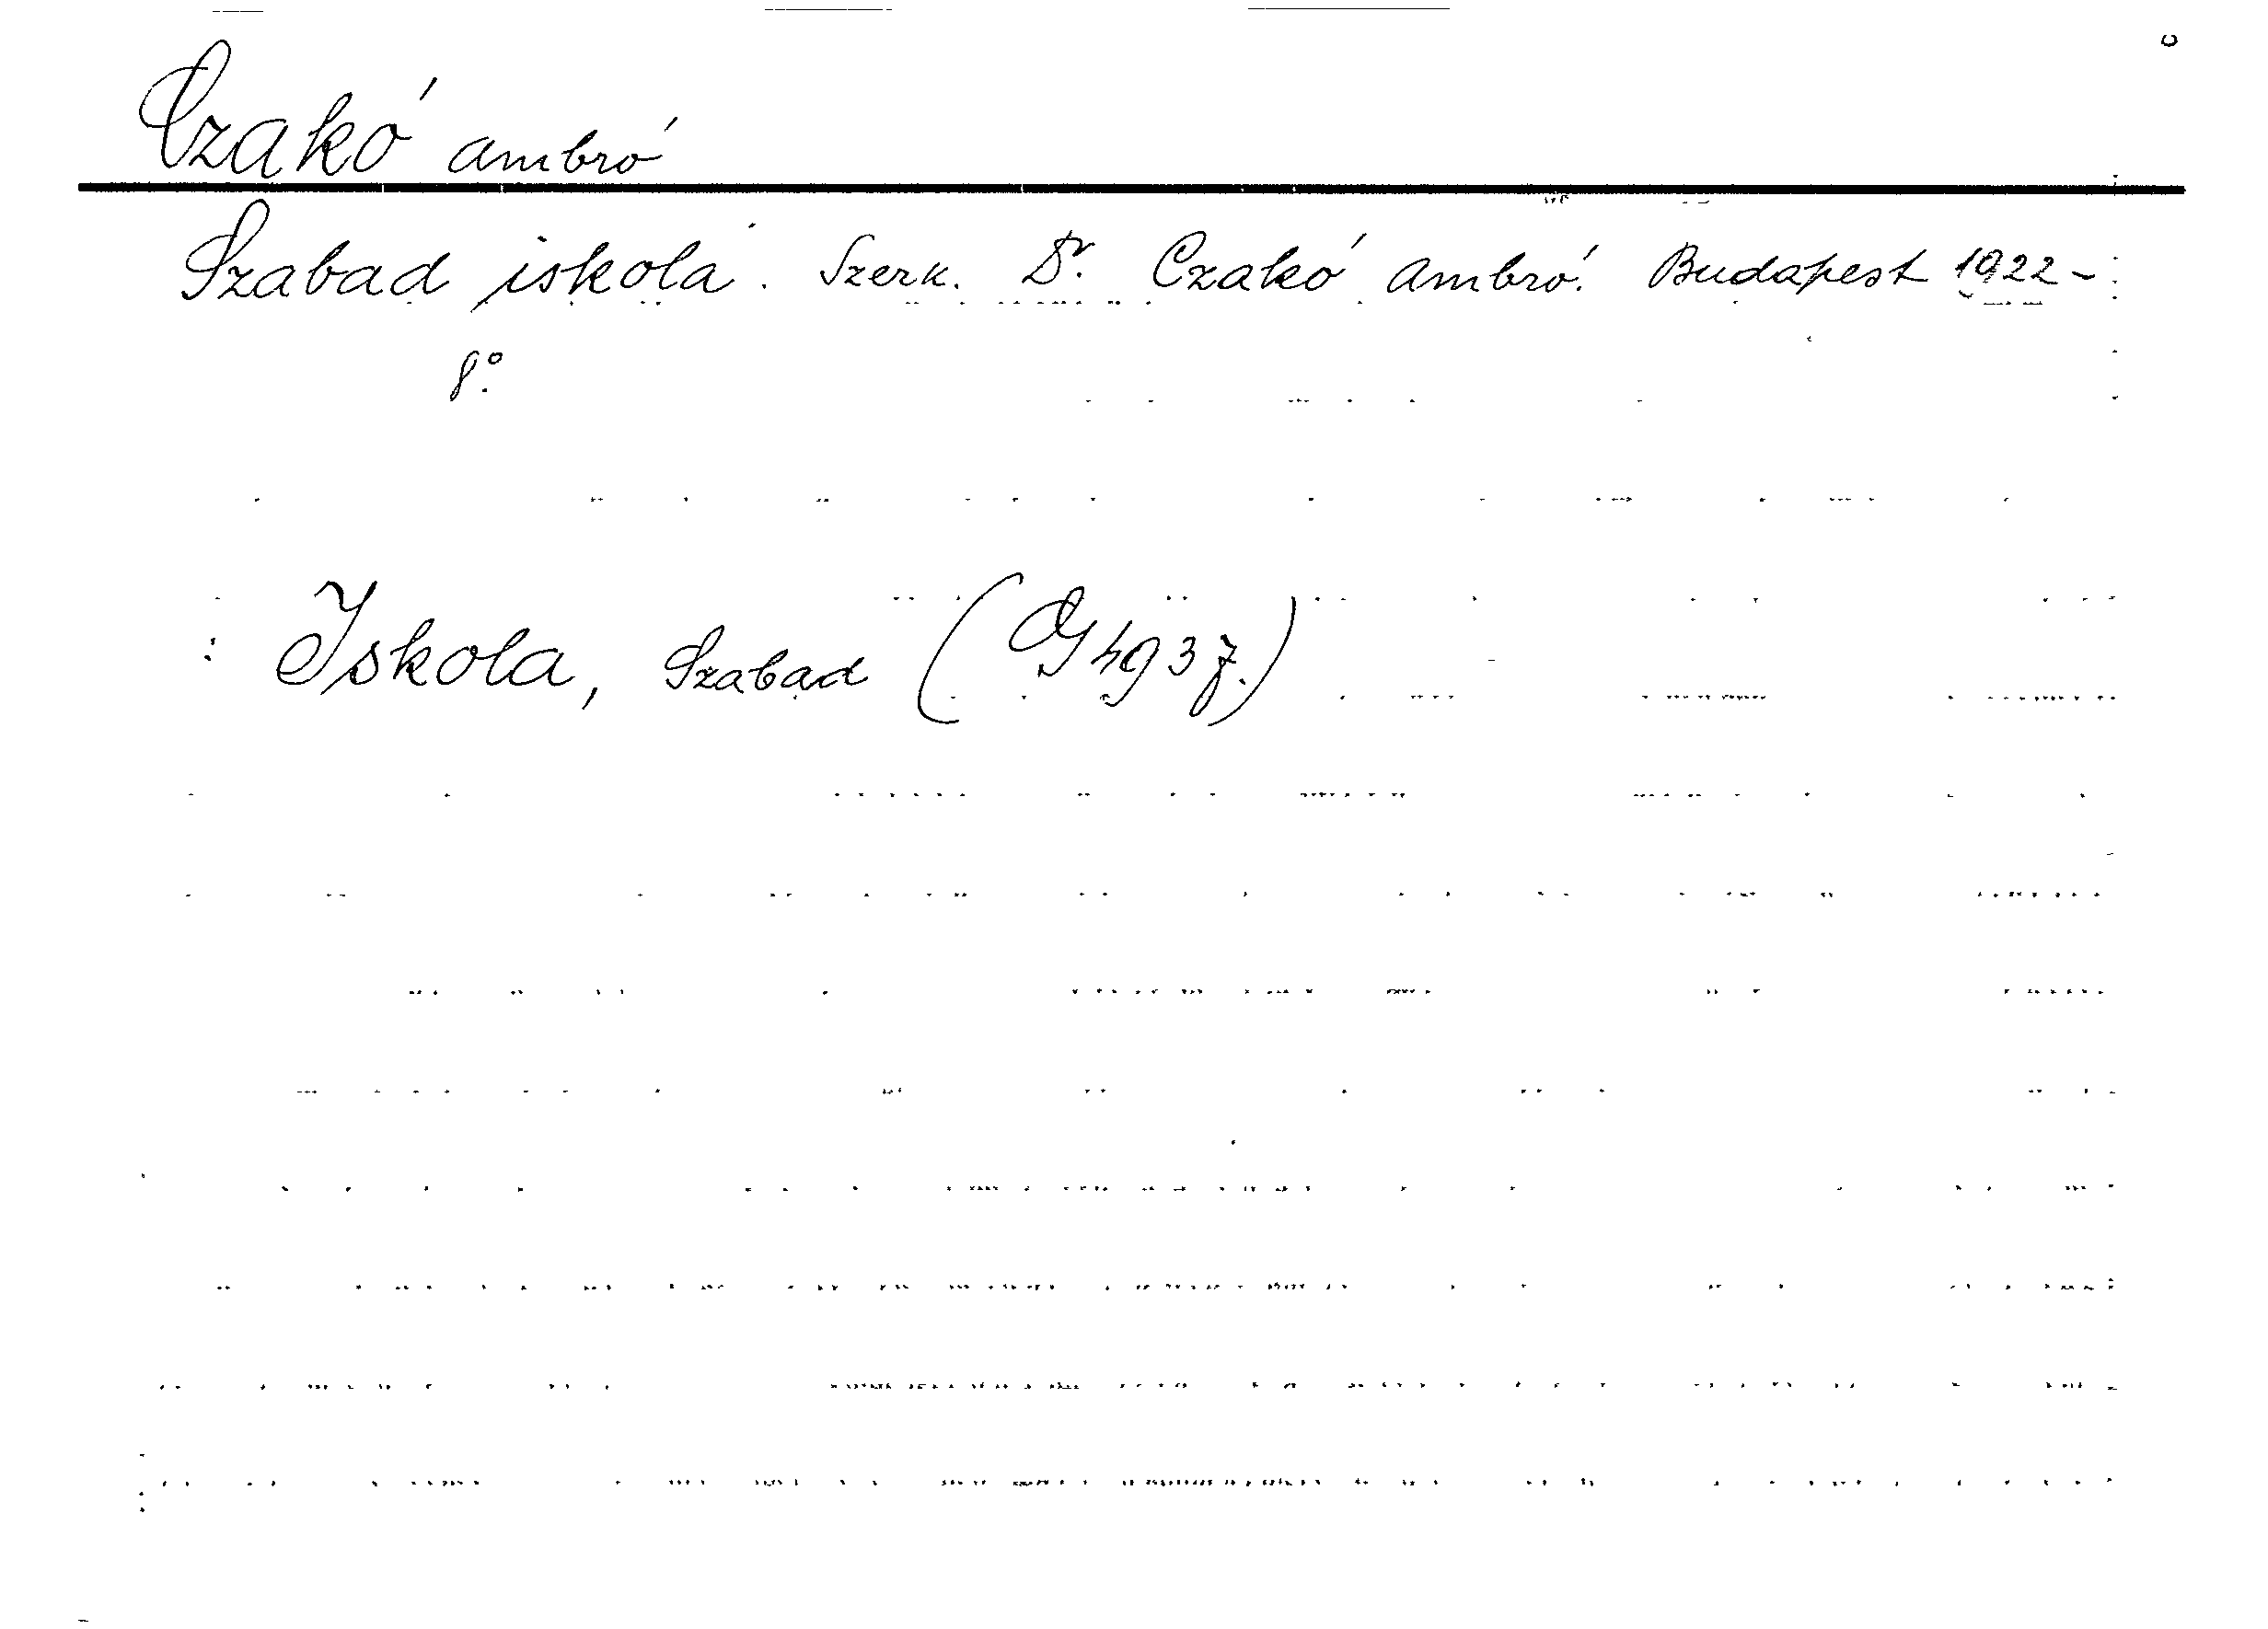 Czakó Ambró
Szabad iskola. Szerk. Dr. Czakó Ambró. Budapest 1922-
8°.
Iskola, Szabad (G 4937.)